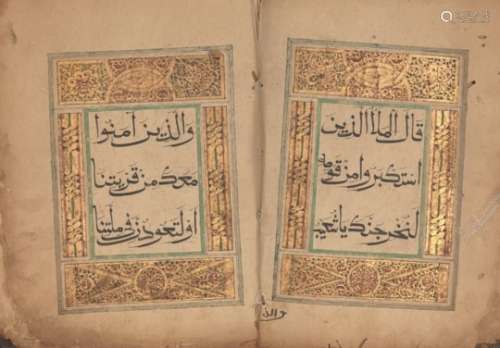 قال الملأ الذين
استكبروا من قومه
لنخرجنك يا شعيب
والذين آمنوا
معك من قريتنا
أو لتعودن في ملتنا
والذ